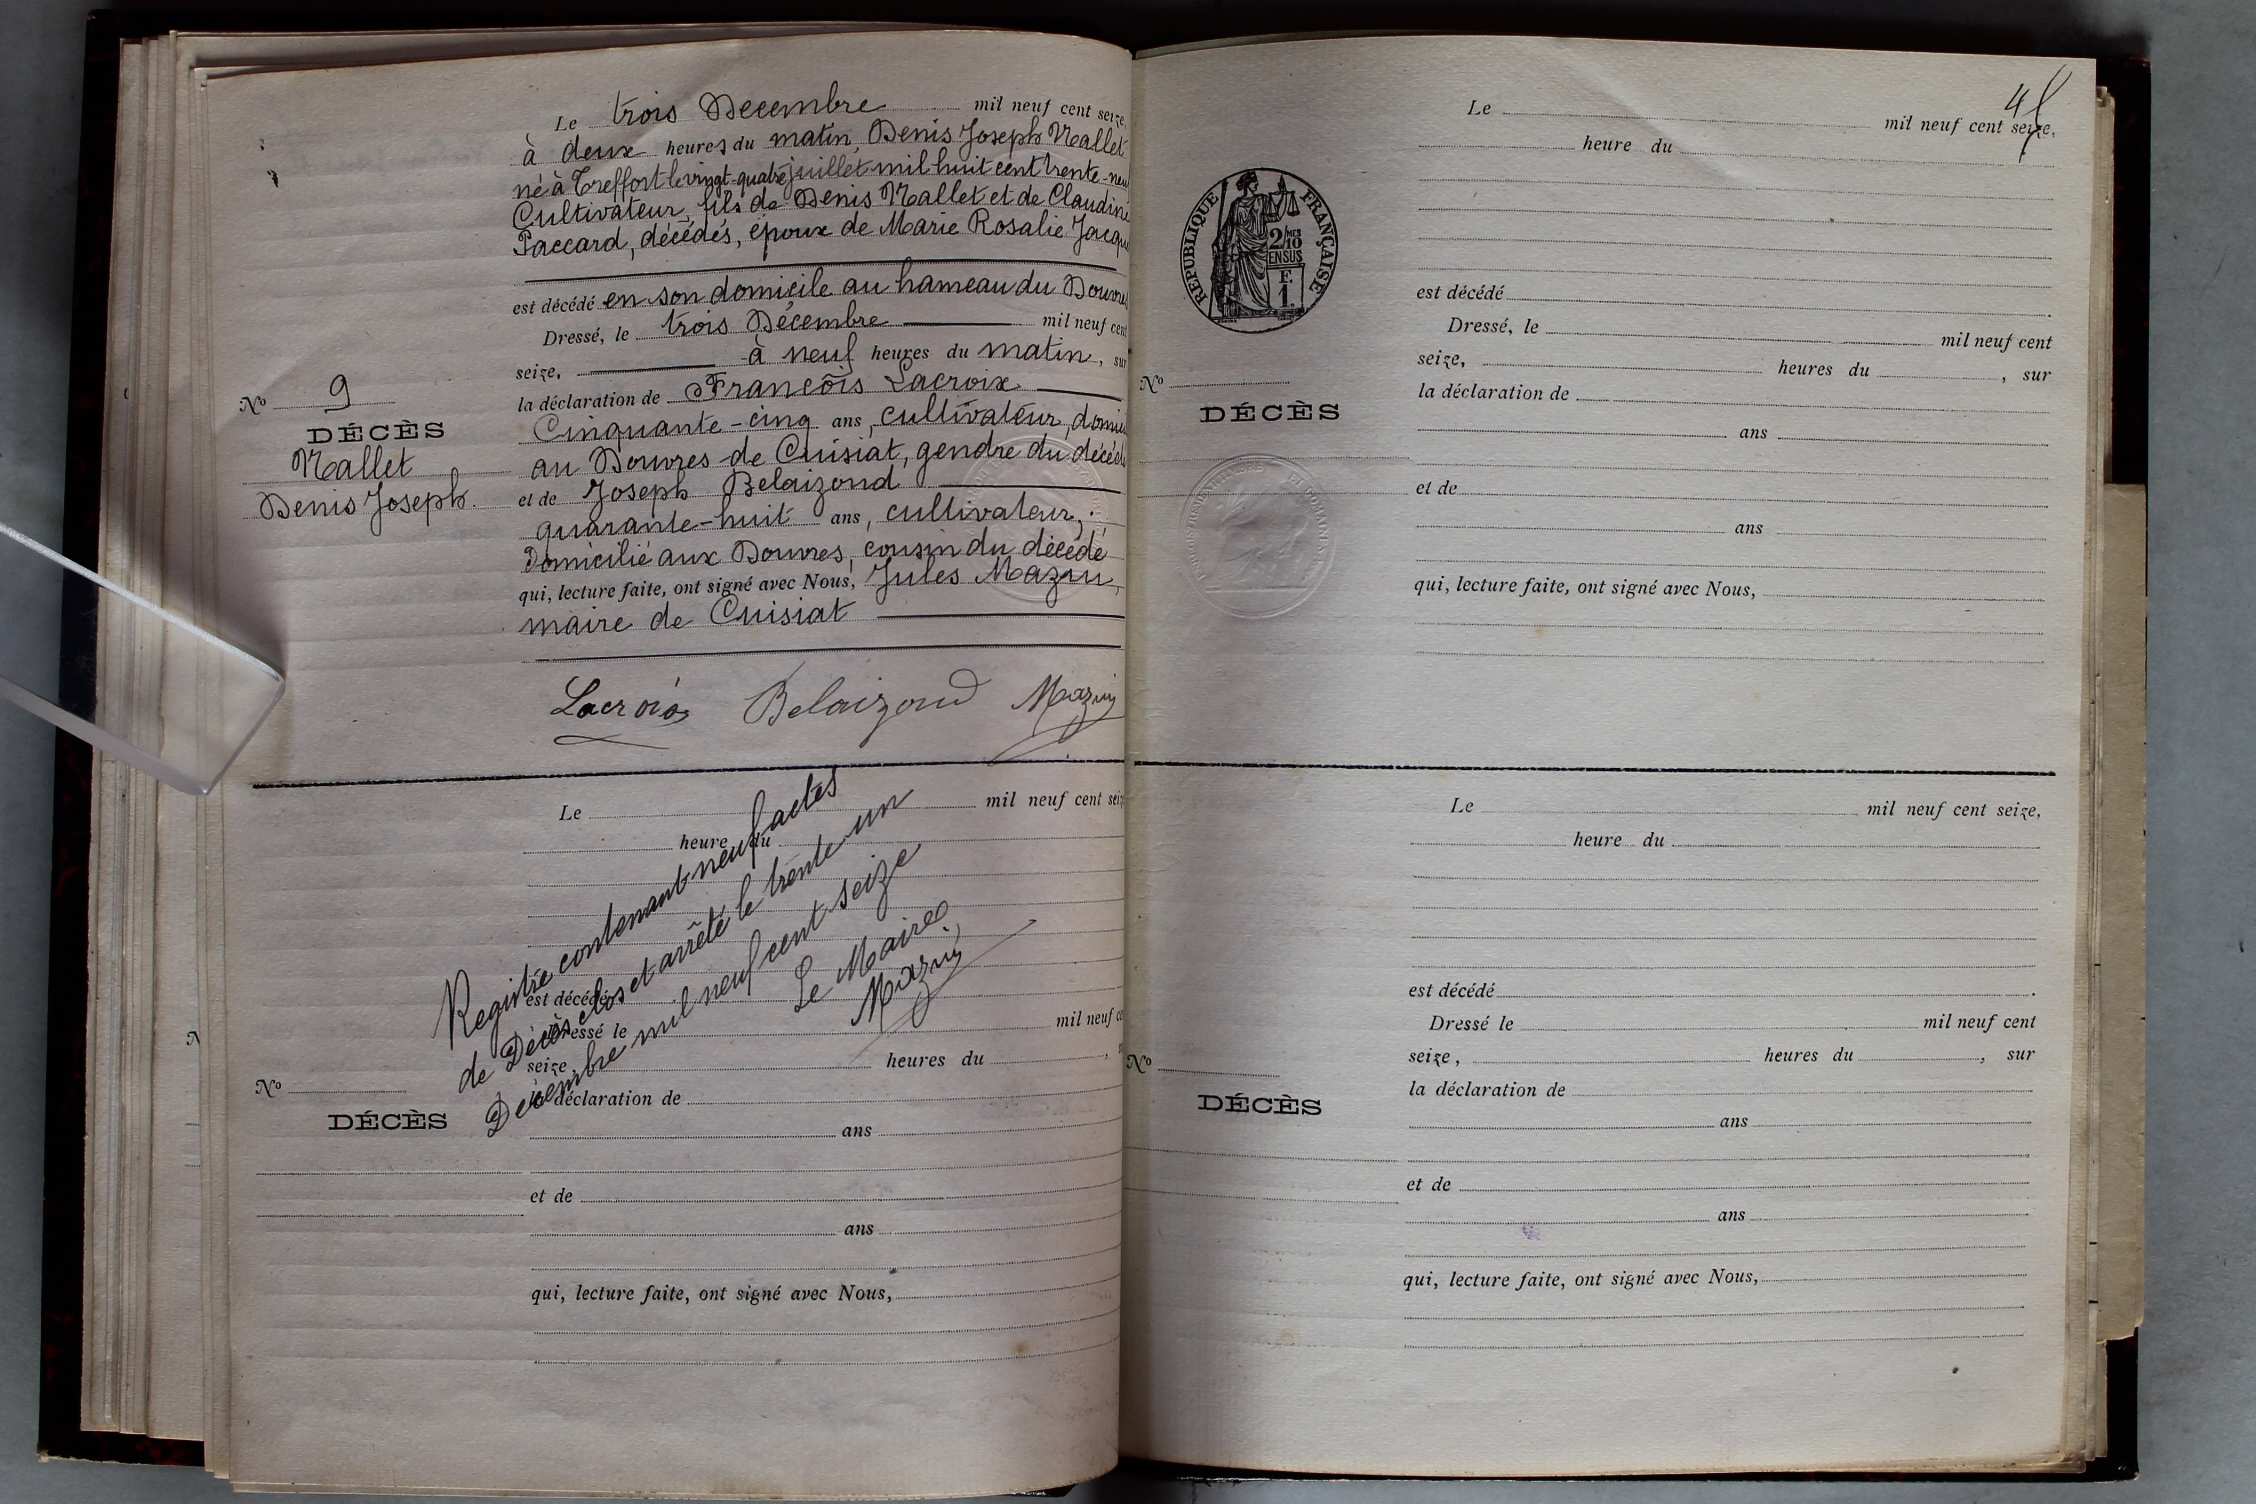 Le trois Decembre mil neuf cent seize,
à deux heures du matin, Denis Joseph Mallet
né à Treffort le vingt-quatre juillet mil huit cent trente-neu
Cultivateur, fils de Denis Mallet et de Claudine
Paccard, décédés, époux de Marie Rosalie Jacqu
est décédé en son domicile au hameau du Douvres
Dressé, le trois Décembre mil neuf cent
seize, à neuf heures du matin, sur
la déclaration de François Lacroix
Cinquante-cinq ans, cultivateur, domici
au Douvres de Cuisiat, gendre du décédé
et de Joseph Belaizond
quarante-huit ans, cultivateur,
Domicilié aux Douvres, cousin du décédé
qui, lecture faite, ont signé avec Nous, Jules Mazuy,
maire de Cuisiat
Lacroix Belaizond Mazuy
No 9
DÉCÈS
Mallet
Denis Joseph
Le mil neuf cent seiz
heure du
est décédé
Dressé le mil neuf ce
seize, heures du
la déclaration de
ans
et de
ans
qui, lecture faite, ont signé avec Nous,
No
DÉCÈS
Registre contenant neuf actes
de Décès clos et arrêté le trente-un
Décembre mil neuf cent seize
Le Maire,
Mazuy
Le mil neuf cent seize,
heure du
est décédé
Dressé, le mil neuf cent
seize, heures du , sur
la déclaration de
ans
et de
ans
qui, lecture faite, ont signé avec Nous,
RÉPUBLIQUE FRANÇAISE
2/10 MES
EN SUS
F.
1.
No
DÉCÈS
Le mil neuf cent seize,
heure du
est décédé
Dressé le mil neuf cent
seize, heures du , sur
la déclaration de
ans
et de
ans
qui, lecture faite, ont signé avec Nous,
No
DÉCÈS